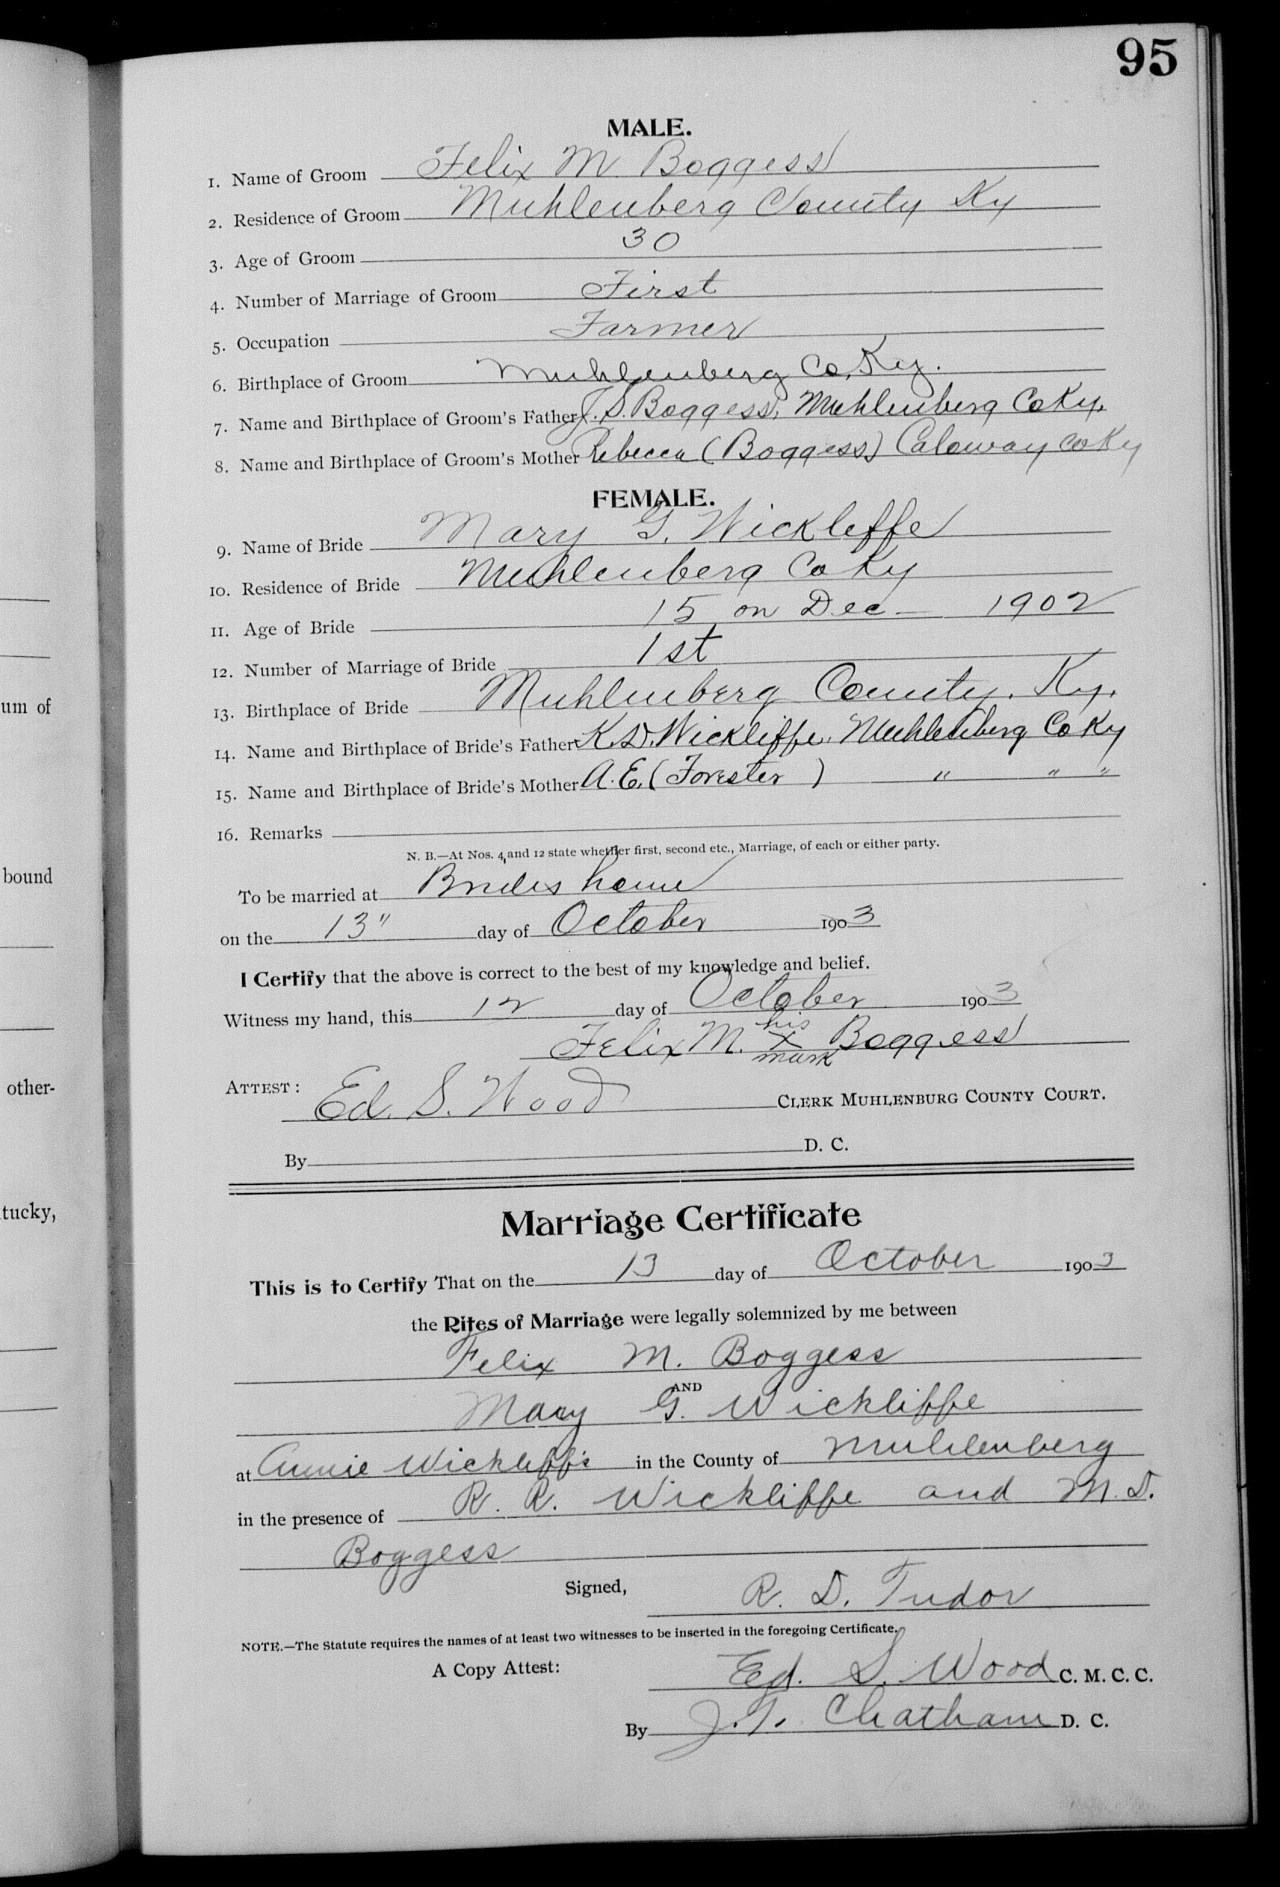 95
MALE.
1. Name of Groom Felix M. Boggess
2. Residence of Groom Muhlenberg County Ky
3. Age of Groom 30
4. Number of Marriage of Groom First
5. Occupation Farmer
6. Birthplace of Groom Muhlenberg Co, Ky.
7. Name and Birthplace of Groom's Father J. S. Boggess, Muhlenberg Co Ky.
8. Name and Birthplace of Groom's Mother Rebecca (Boggess) Caloway Co Ky
FEMALE.
9. Name of Bride Mary G. Wickleffe
10. Residence of Bride Muhlenberg Co Ky
11. Age of Bride 15 on Dec — 1902
12. Number of Marriage of Bride 1st
13. Birthplace of Bride Muhlenberg County. Ky.
14. Name and Birthplace of Bride's Father K. D. Wickliffe, Muhlenberg Co Ky
15. Name and Birthplace of Bride's Mother A. E. (Forester) " " "
16. Remarks
N. B.—At Nos. 4 and 12 state whether first, second etc., Marriage, of each or either party.
To be married at Brides home
on the 13" day of October 1903
I Certify that the above is correct to the best of my knowledge and belief.
Witness my hand, this 12 day of October 1903
Felix M. his X mark Boggess
ATTEST:
Ed. S. Wood CLERK MUHLENBURG COUNTY COURT.
By D. C.
Marriage Certificate
This is to Certify That on the 13 day of October 1903
the Rites of Marriage were legally solemnized by me between
Felix M. Boggess
AND
Mary G. Wickliffe
at Annie Wickliffs in the County of Muhlenberg
in the presence of R. R. Wickliffe and M. D.
Boggess
Signed, R. D. Tudor
NOTE.—The Statute requires the names of at least two witnesses to be inserted in the foregoing Certificate.
A Copy Attest: Ed. S. Wood C. M. C. C.
By J. T. Chatham D. C.
um of
bound
other-
tucky,